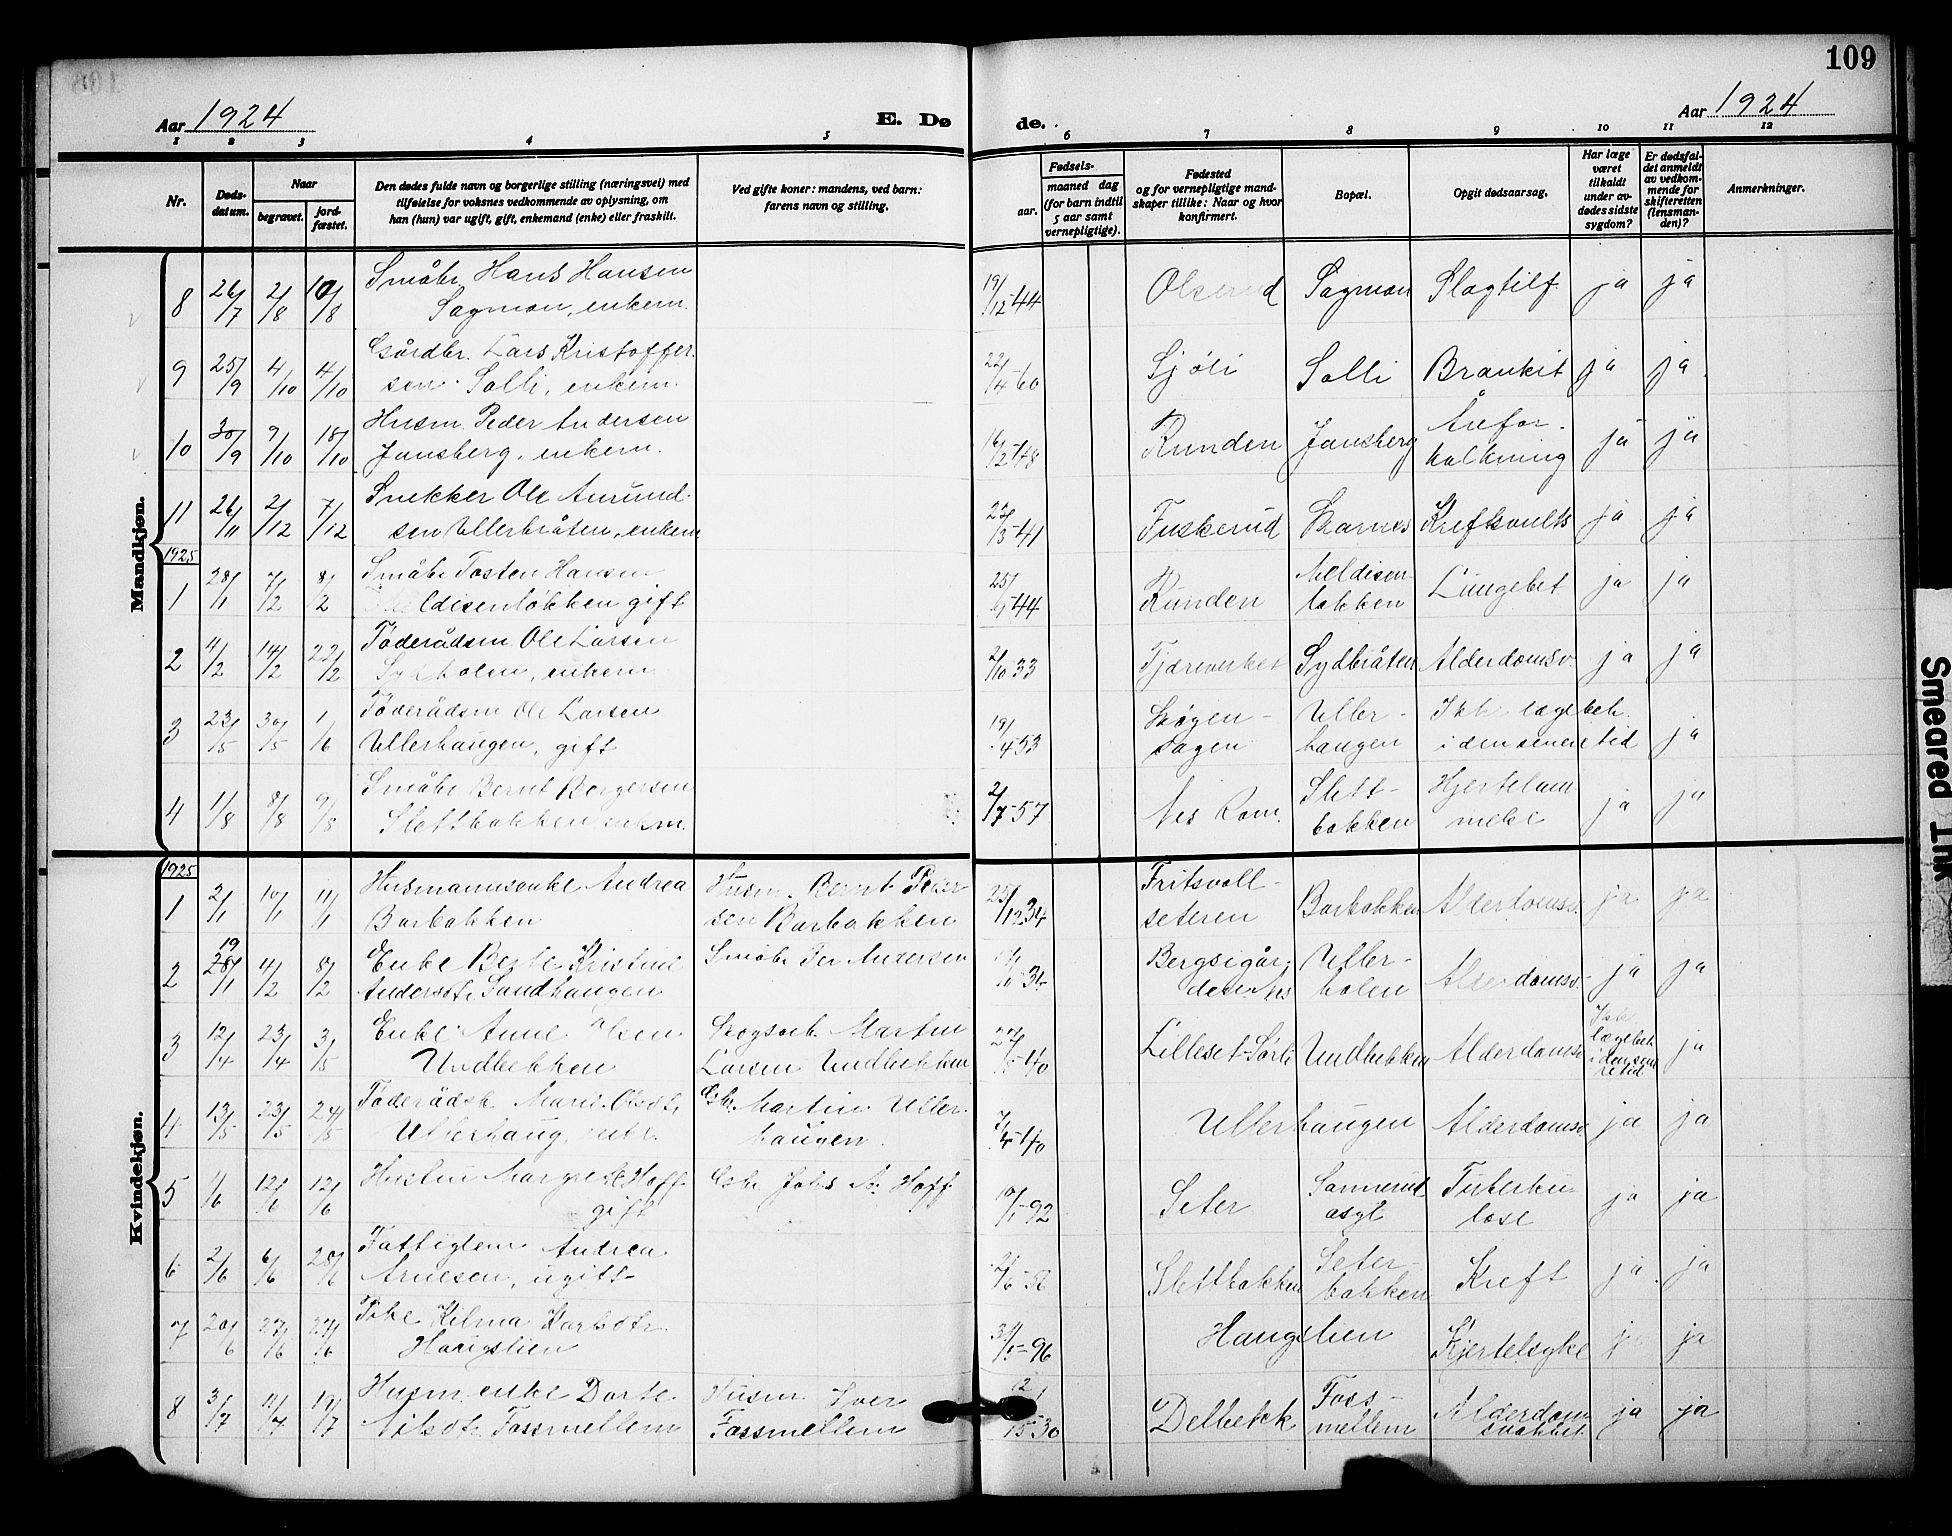 109
Aar 1924
E. Dø
de.
Aar 1924
1 2 3 4 5 6 7 8 9 10 11 12
Nr.
Døds-
datum.
Naar
begravet.
jord-
fæstet.
Den dødes fulde navn og borgerlige stilling (næringsvei) med
tilføielse for voksnes vedkommende av oplysning, om
han (hun) var ugift, gift, enkemand (enke) eller fraskilt.
Ved gifte koner: mandens, ved barn:
farens navn og stilling.
Fødsels-
aar.
maaned dag
(for barn indtil
5 aar samt
vernepligtige).
Fødested
og for vernepligtige mand-
skaper tillike: Naar og hvor
konfirmert.
Bopæl.
Opgit dødsaarsag.
Har læge
været
tilkaldt
under av-
dødes sidste
sygdom?
Er dødsfal-
det anmeldt
av vedkom-
mende for
skifteretten
(lensman-
den)?
Anmerkninger.
Mandkjøn.
8 26/7 2/8 10/8 Småbr. Hans Hansen
Sagmon, enkem. 19/12-44 Olserud Sagmon Slagtilf. ja ja
9 25/9 4/10 4/10 Gårdbr. Lars Kristoffer-
sen Solli, enkem. 22/4-60 Sjøli Solli Bronkit ja ja
10 30/9 9/10 18/10 Husm. Peder Andersen
Jansberg, enkem. 16/2-48 Runden Jansberg Årefor-
kalkning ja ja
11 26/11 2/12 7/12 Snekker Ole Amund-
sen Ullerbråten, enkem 22/3-41 Fuskerud Skarnes Kreftsvulst ja ja
1925
1 28/1 7/2 8/2 Småbr. Tosten Hansen
Meldisenløkken gift 25/9-44 Runden Meldisen-
løkken Lungebet ja ja
2 4/2 14/2 22/2 Føderådsm. Ole Larsen
enkem 2/10 33 Tjæreverket Sydbråten Alderdomsv. ja ja
3 23/5 30/5 1/6 Føderådsm Ole Larsen
Ullerhaugen, gift 19/4-53 Skogen-
sagen Uller-
haugen Ikke lægebeh.
i den senere tid ja
4 1/8 8/8 9/8 Småbr Bernt Borgersen
Slettbakken enkm. 2/7-57 Nes Rom. Slett-
bakken Hjertelam
melse ja ja
Kvindekjøn.
1925
1 2/1 10/1 11/1 Husmannsenke Andrea
Barbakken Husm. Bernt Peder-
sen Barbakken 25/12 34 Fritsvoll-
seteren Barbakken Alderdomsv. ja ja
2 19 28/1 4/2 8/2 Enke Berte Kristine
Andersdtr Sandhaugen Småbr Per Andersen 34 Bergsigår-
den Nes Uller-
holen Alderdomsv. ja ja
3 12/4 23/4 3/5 Enke Anne Olsen
Undbekken Skogsarb. Martin
Larsen Undbekken 40 Lilleset-Sørli Undbekken Alderdomsv Ikke
lægebeh
i den sene
re tid ja
4 13/5 23/5 24/5 Føderådsk Marie Olsdtr
Ullerhaug, enke. Gbr. Martin Uller-
haugen. 7/4-40 Ullerhaugen Alderdomsv ja ja
5 1/6 12/6 12/6 Hustru Margrete Hoff
gift Gbr Johs M. Hoff 92 Seter Sannerud
asyl Tuberku
lose ja ja
6 2/6 6/6 28/6 Fattiglem Andrea
Arnesen, ugift- Slettbakken Seter-
bakken Kreft ja ja
7 20/6 27/6 27/6 Pike Hilma Karlsdtr.
Haugslien 96 Haugslien Kjertelsyke ja ja
8 3/7 11/7 19/7 Husm. enke Dorte
Nilsdtr Fossmellem Husm. Iver
Fossmellem 30 Delbekk Foss-
mellem Alderdom
svakhet ja ja
Smeared Ink